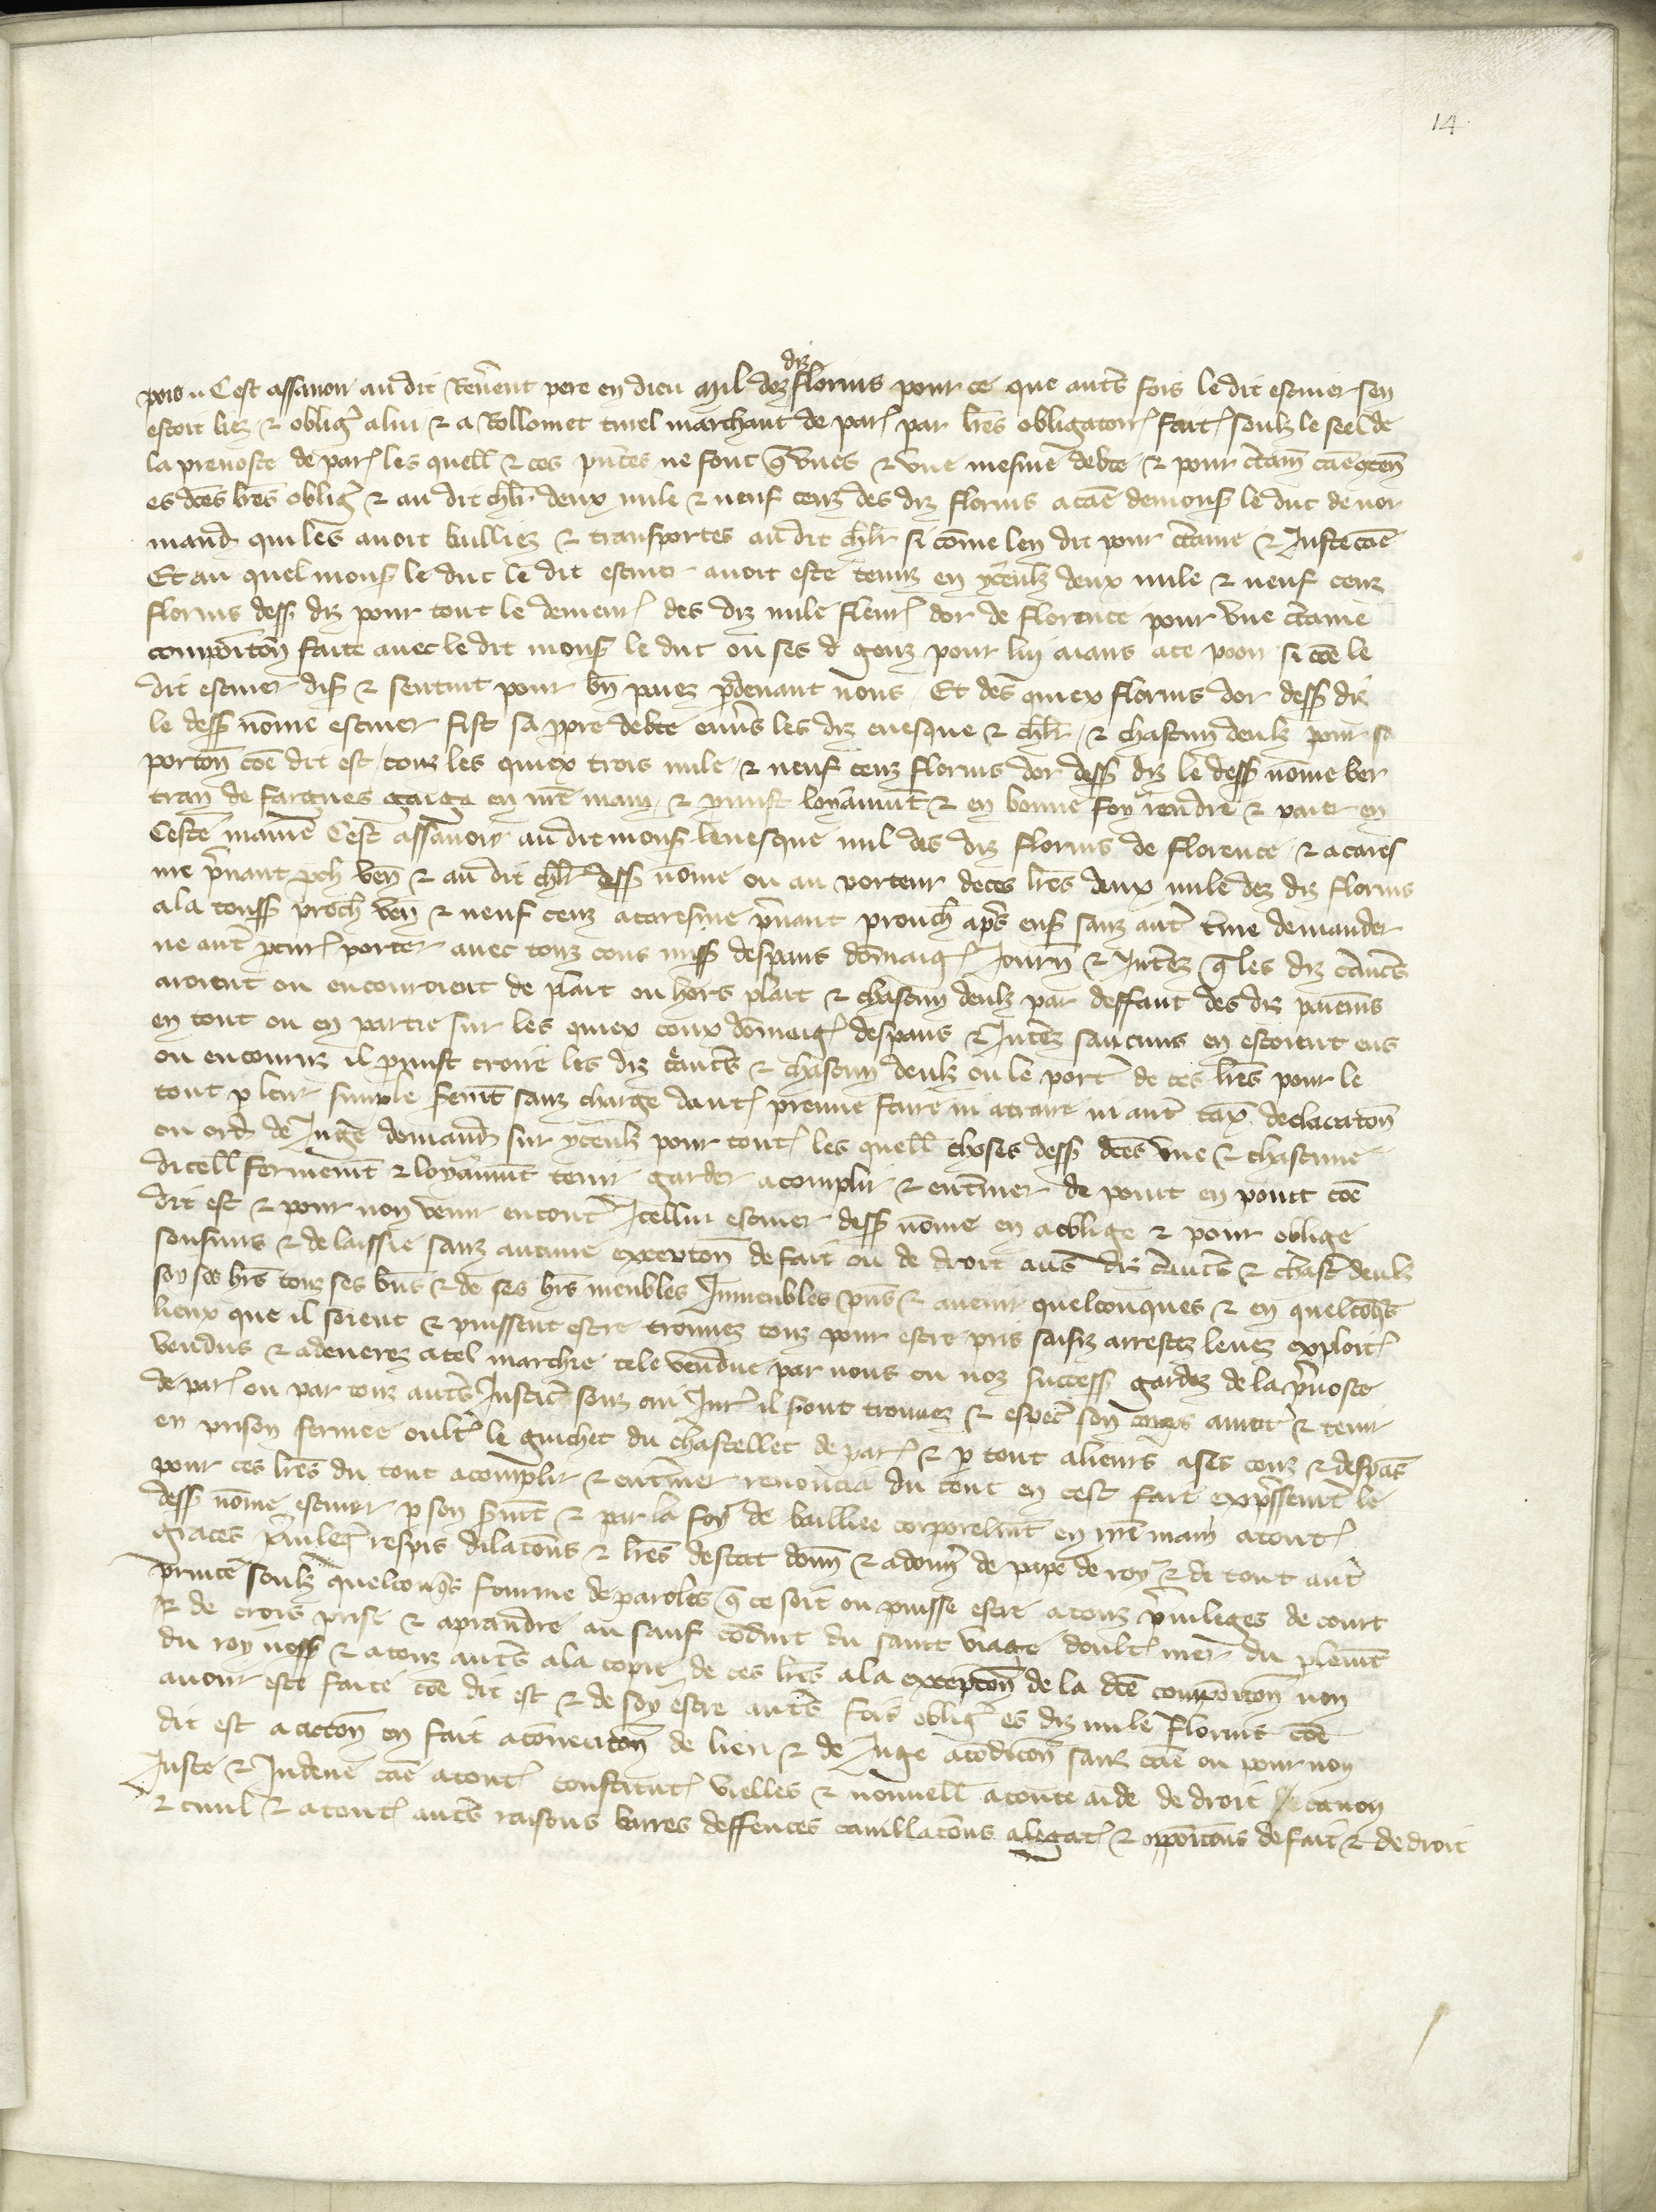 14
pois .. Cest assavoir au dit Reverent pere en dieu mil dez diz florins pour ce que autres fois le dit escuier sen
estoit liez & obligez a lui & a Rollomet turel marchant de par̃ par lres obligatoir̃ fait̃ soubz le seel de
la prevoste de par̃ les quell̃ & ces pñtes ne font q̃ unes & une mesme debte & pour c̃taine cãe 9ten̄
es dc̃es lr̃es oblig̃ & au dit chl̃r deux mile & neuf cenz des diz florins a cãe de mons̃ le duc de nor
mand̃ qui les avoit bailliez & transportes au dit chl̃r si cõme len dit pour c̃taine & Juste cãe
Et au quel mons̃ le duc le dit escuier avoit este tenuz en yceulz deux mile & neuf cenz
florins dess̃ diz pour tout le demeur̃ des diz mile fleur̃ dor de florence pour une c̃taine
compoic̃on faite avec le dit mons̃ le duc ou ses d genz pour lui aians a ce poon si cõe le
dit escuier dis̃ & sentint pour bn̄ paiez p̱devant nous Et des quiex florins dor dess̃ diz
le dess̃ nõme escuier fist sa pp̃re debte envers les diz evesque & chl̃r & chascun deulz pour sa
porton̄ cõe dit est touz les quiex trois mile & neuf cenz florins dor dess̃ diz le dess̃ nõme ber
tran de fargues gaiga en nr̃e main & p̱mist loyaument & en bonne foy rendre & paier en
Ceste manie Cest assavoir au dit mons̃ levesque mil des diz florins de florence & a cares
me p̃nant p̱ch ven̄ & au dit chl̃r dess̃ nõme ou au porteur de ces lr̃es deux mile dez diz florins
a la touss̃ proch̃ ven̄ & neuf cenz a caresme p̃nant prouch̃ ap̃s ens̃ sanz autr̃ t̃me demander
ne autr̃ p̱cur̃ porter avec touz cous miss̃ despans dõmaig̃ Journ̄ & Intẽz q̃ les diz c̃anc̃es
aroient ou encourroient de plait ou hors plait & chascun deulz par deffaut des diz paiem̃s
en tout ou en partie sur les quiex coux dõmaig̃ despans & Intẽz saucuns en estoient eus
ou encouruz il p̱mist croire les diz c̃anc̃es & chascun deulz ou le port̃ de ces lr̃es pour le
tout p̱ leur simple serm̃t sanz charge daut̃ preuve faire ni atraire ni autr̃ tax̃ declaraton̄
ou ord̃ de Juge demand̃ sur yceulz pour tout̃ les quell̃ choses dess̃ dc̃es une & chascune
dicell̃ fermem̃t & loyaum̃t tenir garder acomplir & ent̃iner de point en point cõe
dit est & pour non venir encont̃ Icellui escuier dess̃ nõme en a oblige & pour oblige
soufmis & delaissie sanz aucune exepton̄ de fait ou de droit aus diz c̃anc̃es & chasc̃ deulz
soy ses hr̃s touz ses bn̄s & de ses hr̃s meubles Inmeubles pñs & avenir quelconques & en quelc̃oq̃s
lieux que il soient & puissent estre trouvez touz pour estre pris saisiz arrestez levez exploit̃
vendus & adenerez a tel marchie tele vendue par nous ou noz success̃ gardez de la p̃voste
de par̃ ou par touz autr̃s Justic̃ souz cui Jur̃ il s̃ont trouvez & espec̃ son corps arret̃ & tenir
en prison fermee oult̃ le guichet du chastellet de par̃ & p̱ tout alieurs a ses couz & despãs
pour ces lr̃es du tout acomplir & ent̃iner renoncia du tout en cest fait exp̃ssem̃t le
dess̃ nõme escuier p̱ son srem̃t & par la foy de bailliee corporelm̃t en nr̃e main a tout̃
graces p̃vileg̃ respis dilacõns & lr̃es destat donn̄ & adonn̄ de pape de roy & de tout autr̃
prince soubz quelconq̃s fourme de paroles q̃ ce soit ou puisse estre a touz p̃vileges de court
& de crois prise & a prandre au sauf condũit du saint viage doult̃ mer du plem̃t
du roy nr̃e s̃ & a touz autr̃s a la copie de ces lr̃es a la excepton̄ de la dc̃e compoic̃on non
avoir este faite cõe dit est & de soy estre autr̃s fois oblig̃ es diz mile florins cõe
dit est a acton̄ en fait a conveniton̄ de lieu & de Juge a condic̃on sanz cãe ou pour non
Juste & Indeue cãe a tout̃ constitut̃ vielles & nouvell̃ a toute aide de droit de canon
& civil & a tout̃ autr̃s raisons barres deffences cavillac̃ons alegat̃ & oppoic̃ons de fait & de droit